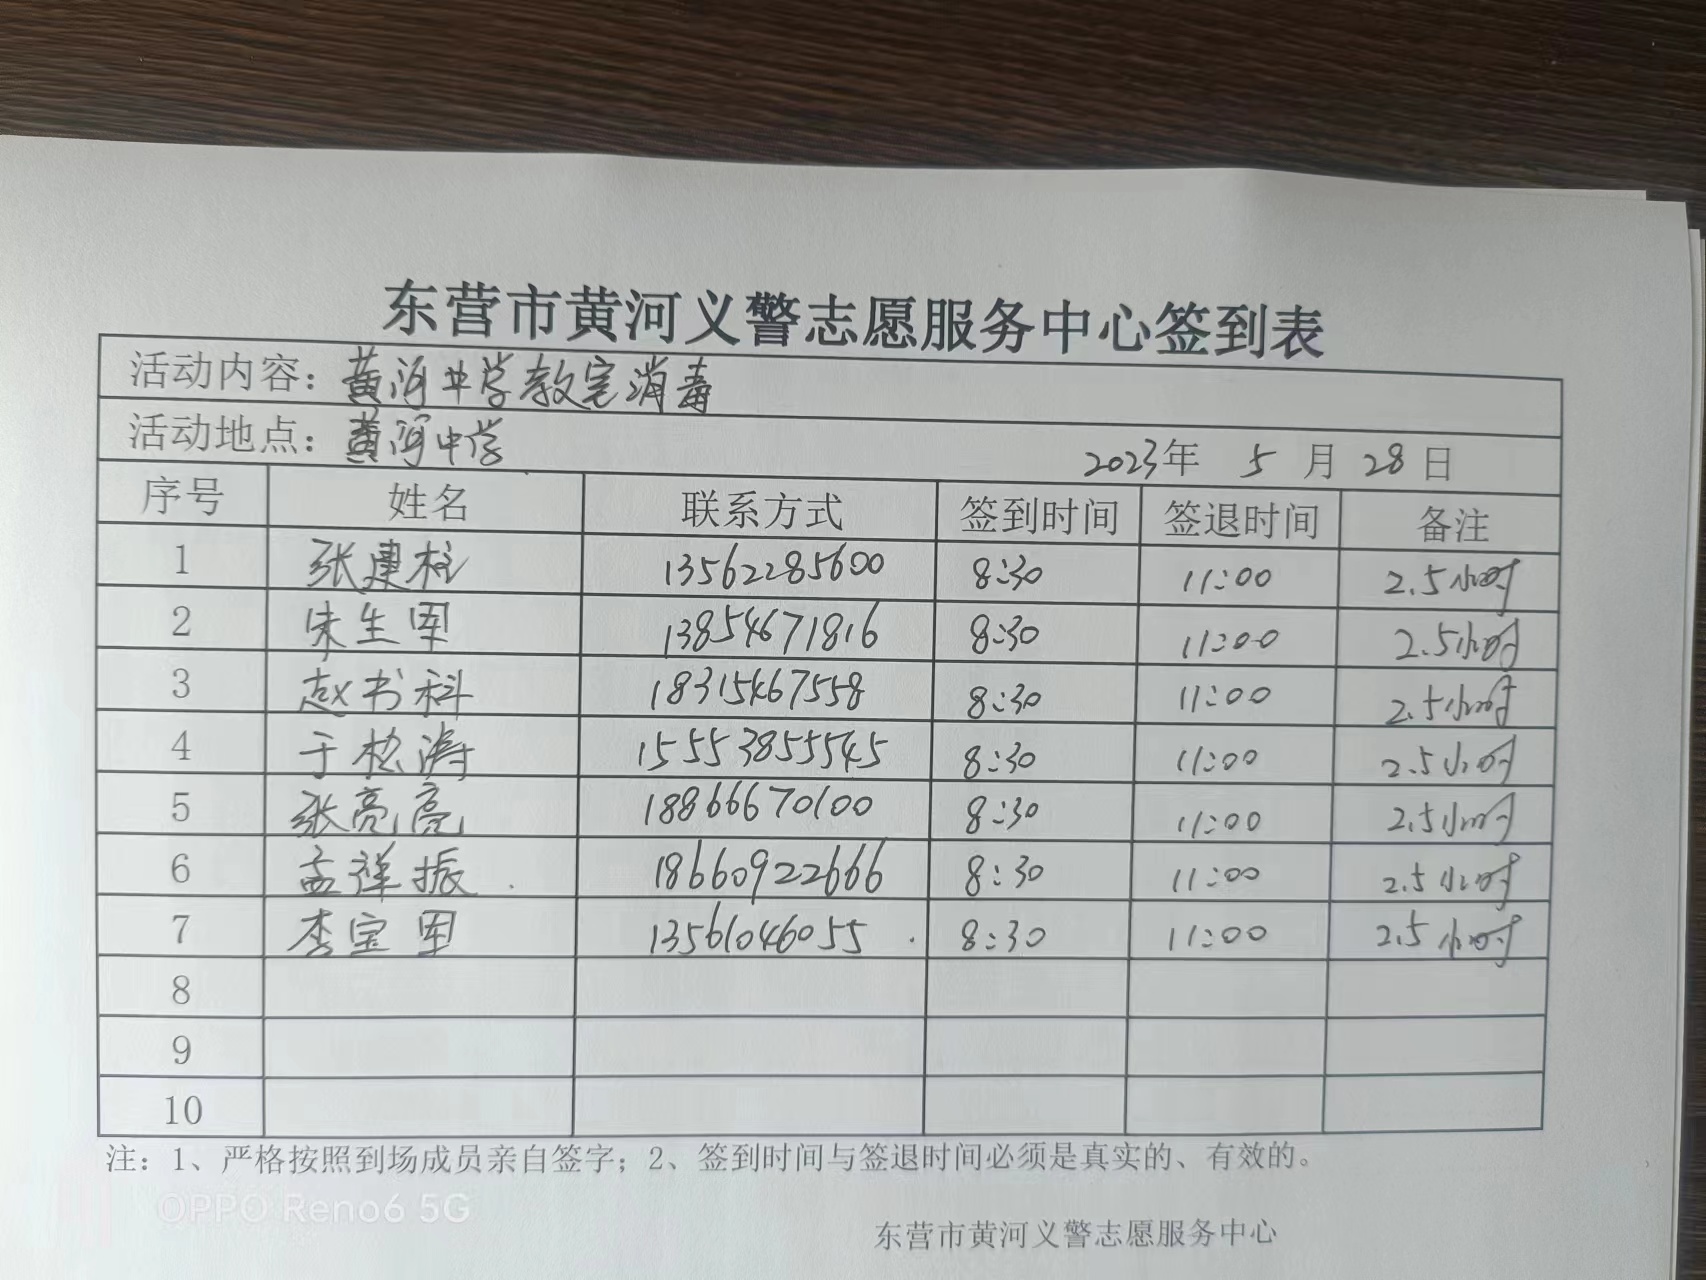 东营市黄河义警志愿服务中心签到表
活动内容：黄河中学教室消毒
活动地点：黄河中学 2023年 5 月 28 日
序号 姓名 联系方式 签到时间 签退时间 备注
1 张建柱 13562285600 8:30 11:00 2.5小时
2 宋生军 13854671816 8:30 11:00 2.5小时
3 赵书科 18315467558 8:30 11:00 2.5小时
4 于松涛 15553855545 8:30 11:00 2.5小时
5 张亮亮 18866670100 8:30 11:00 2.5小时
6 孟祥振 18660922666 8:30 11:00 2.5小时
7 李宝军 13561046055 8:30 11:00 2.5小时
8
9
10
注：1、严格按照到场成员亲自签字；2、签到时间与签退时间必须是真实的、有效的。
OPPO Reno6 5G
东营市黄河义警志愿服务中心